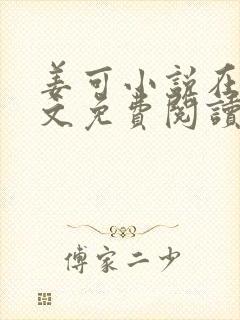 姜可小说在
文免費閱讀
傅家二少